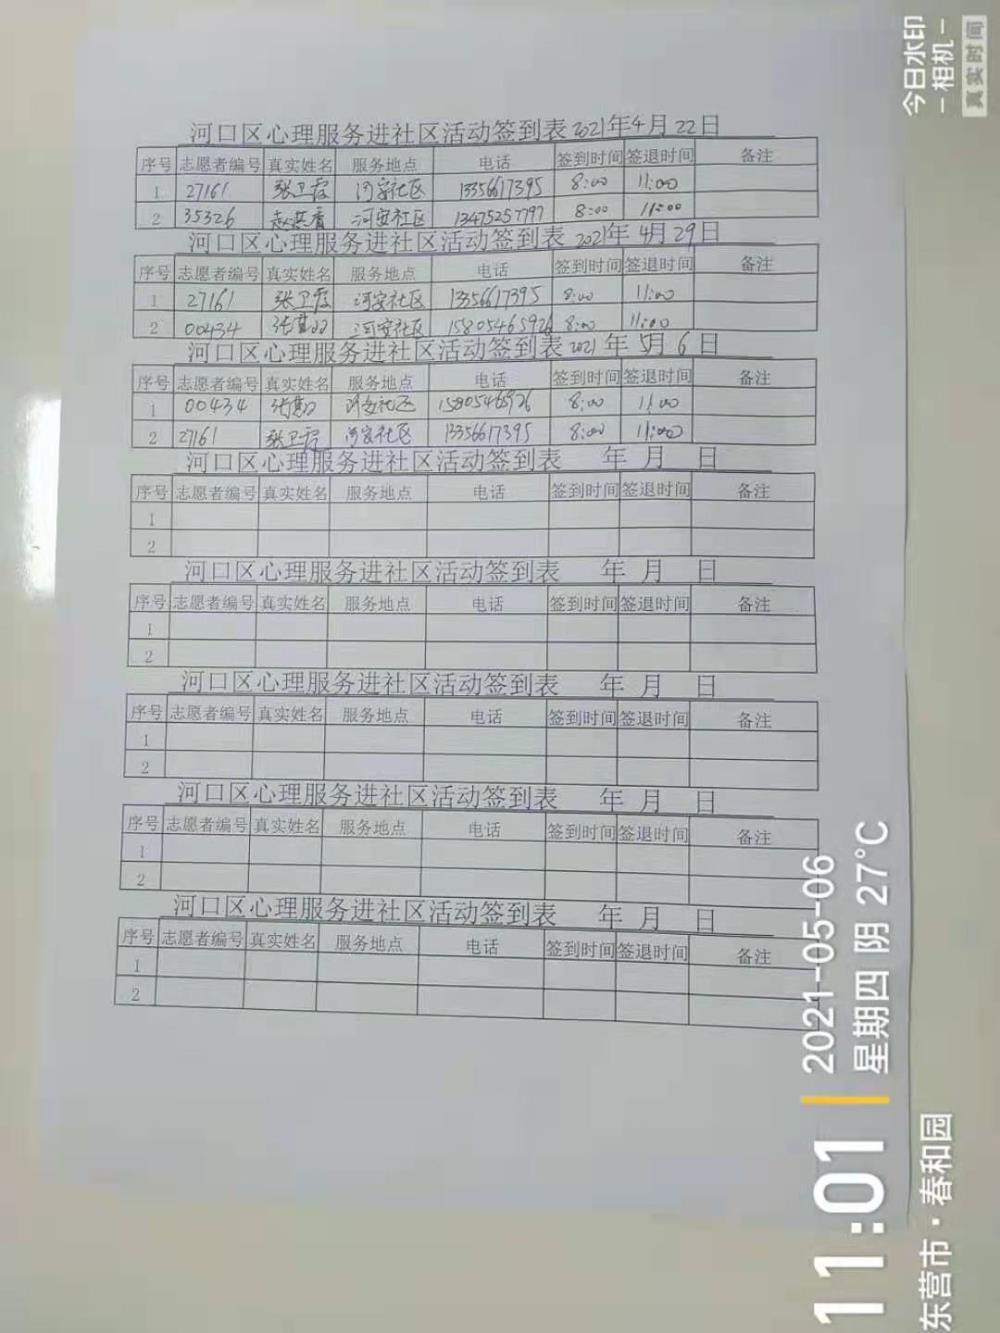 河口区心理服务进社区活动签到表 2021年4月22日
序号 志愿者编号 真实姓名 服务地点 电话 签到时间 签退时间 备注
1 27161 张卫霞 河安社区 13356617395 8:00 11:00
2 35326 河安社区 13475257797 8:00 11:00
河口区心理服务进社区活动签到表 2021年4月29日
序号 志愿者编号 真实姓名 服务地点 电话 签到时间 签退时间 备注
1 27161 张卫霞 河安社区 13356617395 8:00 11:00
2 00434 河安社区 15805465926 8:00 11:00
河口区心理服务进社区活动签到表 2021年5月6日
序号 志愿者编号 真实姓名 服务地点 电话 签到时间 签退时间 备注
1 00434 河安社区 15805465926 8:00 11:00
2 27161 张卫霞 河安社区 13356617395 8:00 11:00
河口区心理服务进社区活动签到表 年 月 日
序号 志愿者编号 真实姓名 服务地点 电话 签到时间 签退时间 备注
1
2
河口区心理服务进社区活动签到表 年 月 日
序号 志愿者编号 真实姓名 服务地点 电话 签到时间 签退时间 备注
1
2
河口区心理服务进社区活动签到表 年 月 日
序号 志愿者编号 真实姓名 服务地点 电话 签到时间 签退时间 备注
1
2
河口区心理服务进社区活动签到表 年 月 日
序号 志愿者编号 真实姓名 服务地点 电话 签到时间 签退时间 备注
1
2
河口区心理服务进社区活动签到表 年 月 日
序号 志愿者编号 真实姓名 服务地点 电话 签到时间 签退时间 备注
1
2
今日水印
-相机-
真实时间
11:01
2021-05-06
星期四 阴 27°C
东营市·春和园